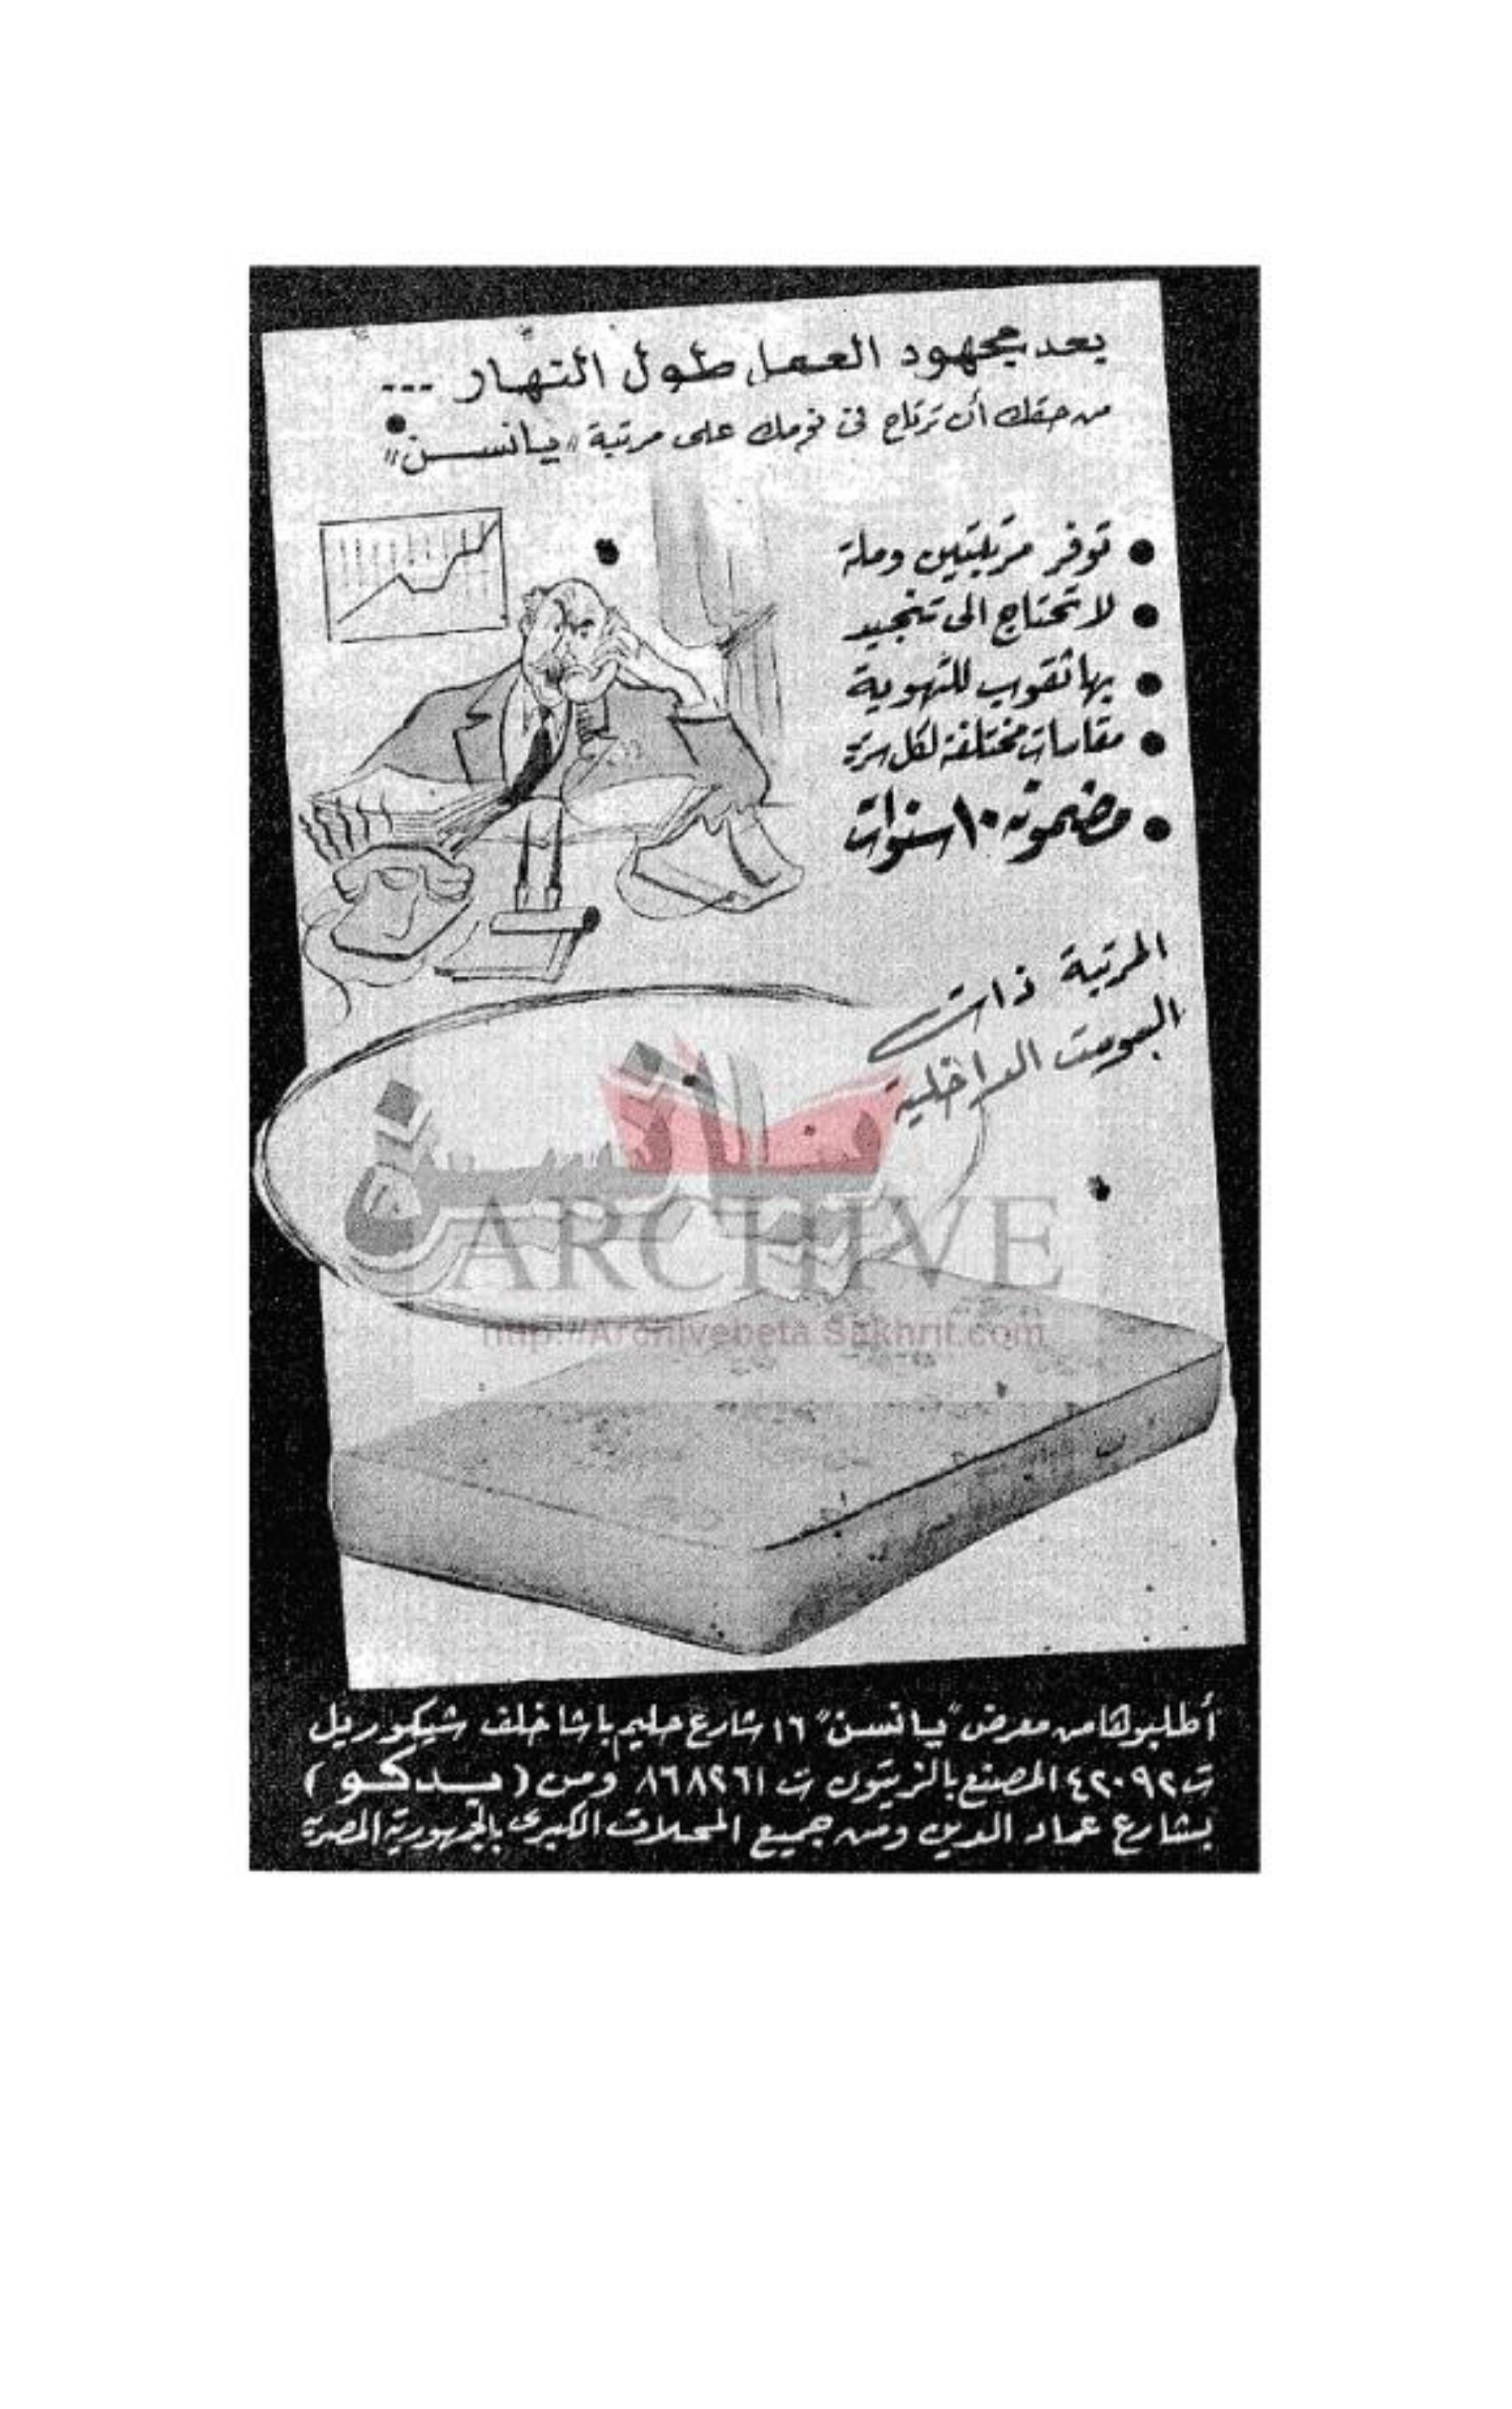 بعد مجهود العمل طول النهار ...
من حقك أن ترتاح فى نومك على مرتبة "يانسن"
● توفر مرتبتين وملة
● لا تحتاج الى تنجيد
● بها ثقوب للتهوية
● مقاسات مختلفة لكل سرير
● مضمونة ١٠ سنوات
المرتبة ذات
السوست الداخلية
يانسن
ARCHIVE
http://Archivebeta.Sakhrit.com
أطلبوها من معرض "يانسن" ١٦ شارع حليم باشا خلف شيكوريل
ت ٤٢٠٩٢ المصنع بالزيتون ت ٨٦٨٢٦١ ومن (بدكو)
بشارع عماد الدين ومن جميع المحلات الكبرى بالجمهورية المصرية